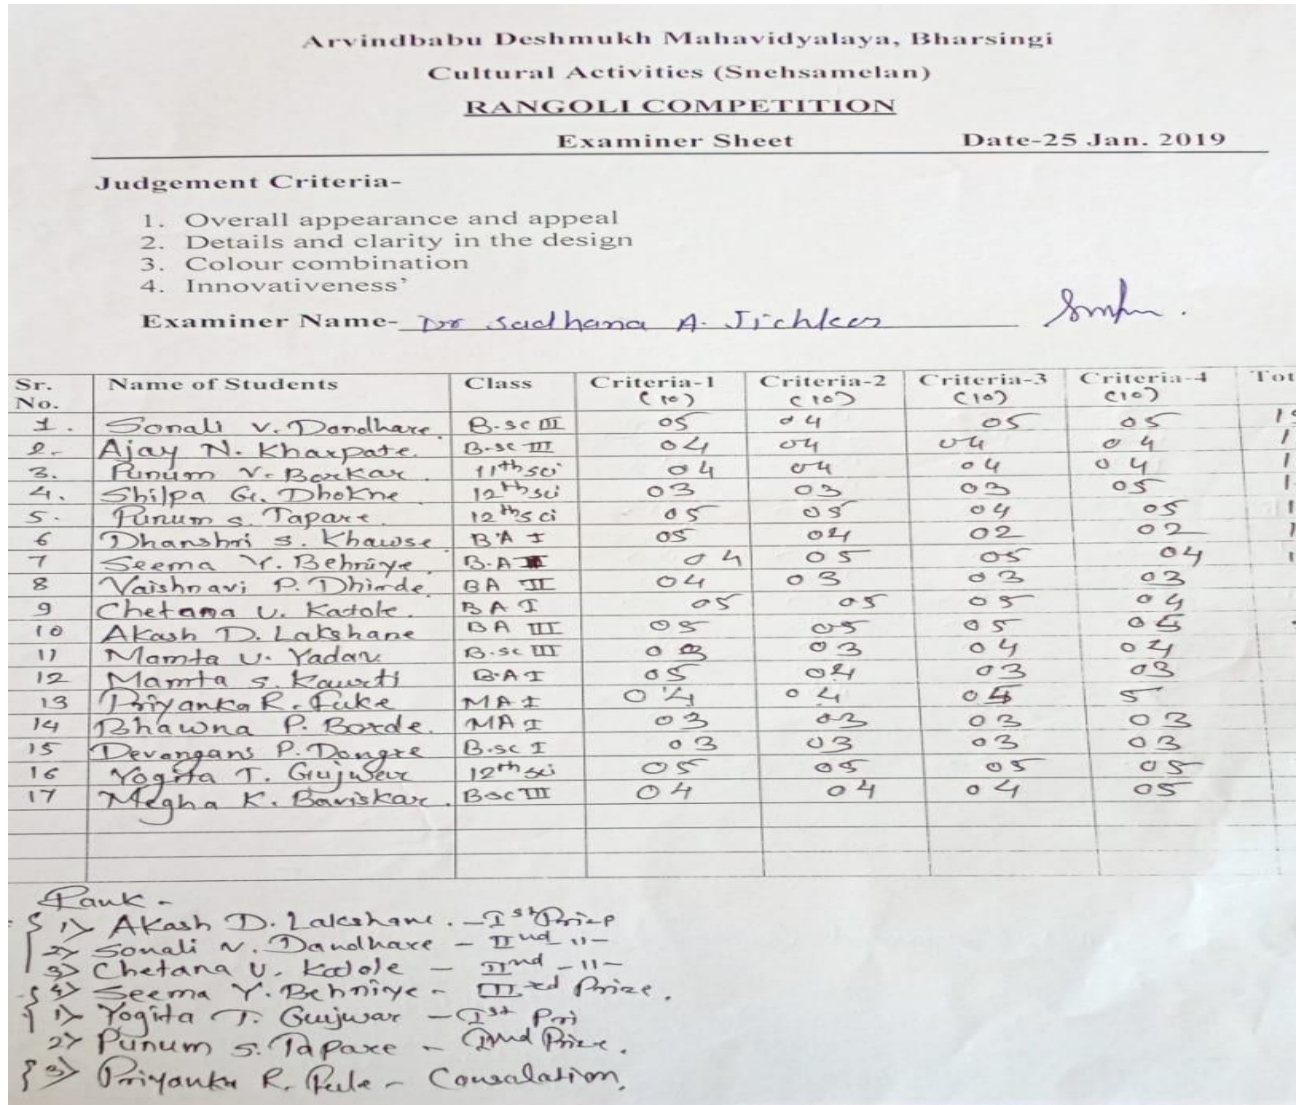 Arvindbabu Deshmukh Mahavidyalaya, Bharsingi
Cultural Activities (Snehsamelan)
RANGOLI COMPETITION
Examiner Sheet Date-25 Jan. 2019
Judgement Criteria-
1. Overall appearance and appeal
2. Details and clarity in the design
3. Colour combination
4. Innovativeness’
Examiner Name- Dr Sadhana A. Jichkar
Sr. No. Name of Students Class Criteria-1 (10) Criteria-2 (10) Criteria-3 (10) Criteria-4 (10) Tot
1. Sonali V. Dandhare B.sc III 05 04 05 05
2. Ajay N. Kharpate B.sc III 04 04 04 04
3. Punum V. Borkar 11th sci 04 04 04 04
4. Shilpa G. Dhokne 12th sci 03 03 03 05
5. Punum S. Tapare 12th sci 05 05 04 05
6 Dhanshri S. Khawse BA I 05 04 02 02
7 Seema Y. Behniye B.A 04 05 05 04
8 Vaishnavi P. Dhirde BA II 04 03 03 03
9 Chetana U. Katole BA I 05 05 05 04
10 Akash D. Lakshane BA III 05 05 05 05
11 Mamta U. Yadav B.sc III 03 03 04 04
12 Mamta S. B.A I 05 04 03 03
13 Priyanka R. Fuke MA I 04 04 04 5
14 Bhawna P. Borde MA I 03 03 03 03
15 Devangans P. Dongre B.sc I 03 03 03 03
16 Yogita T. Gujwar 12th sci 05 05 05 05
17 Megha K. Baviskar Bsc III 04 04 04 05
Rank -
1) Akash D. Lakshane. - Ist Prize
2) Sonali V. Dandhare - IInd -11-
3) Chetana U. Katole - IInd -11-
4) Seema Y. Behniye - IIIrd Prize.
1) Yogita T. Gujwar - Ist Pri
2) Punum S. Tapare - IInd Prize.
3) Priyanka R. Fuke - Consalation.